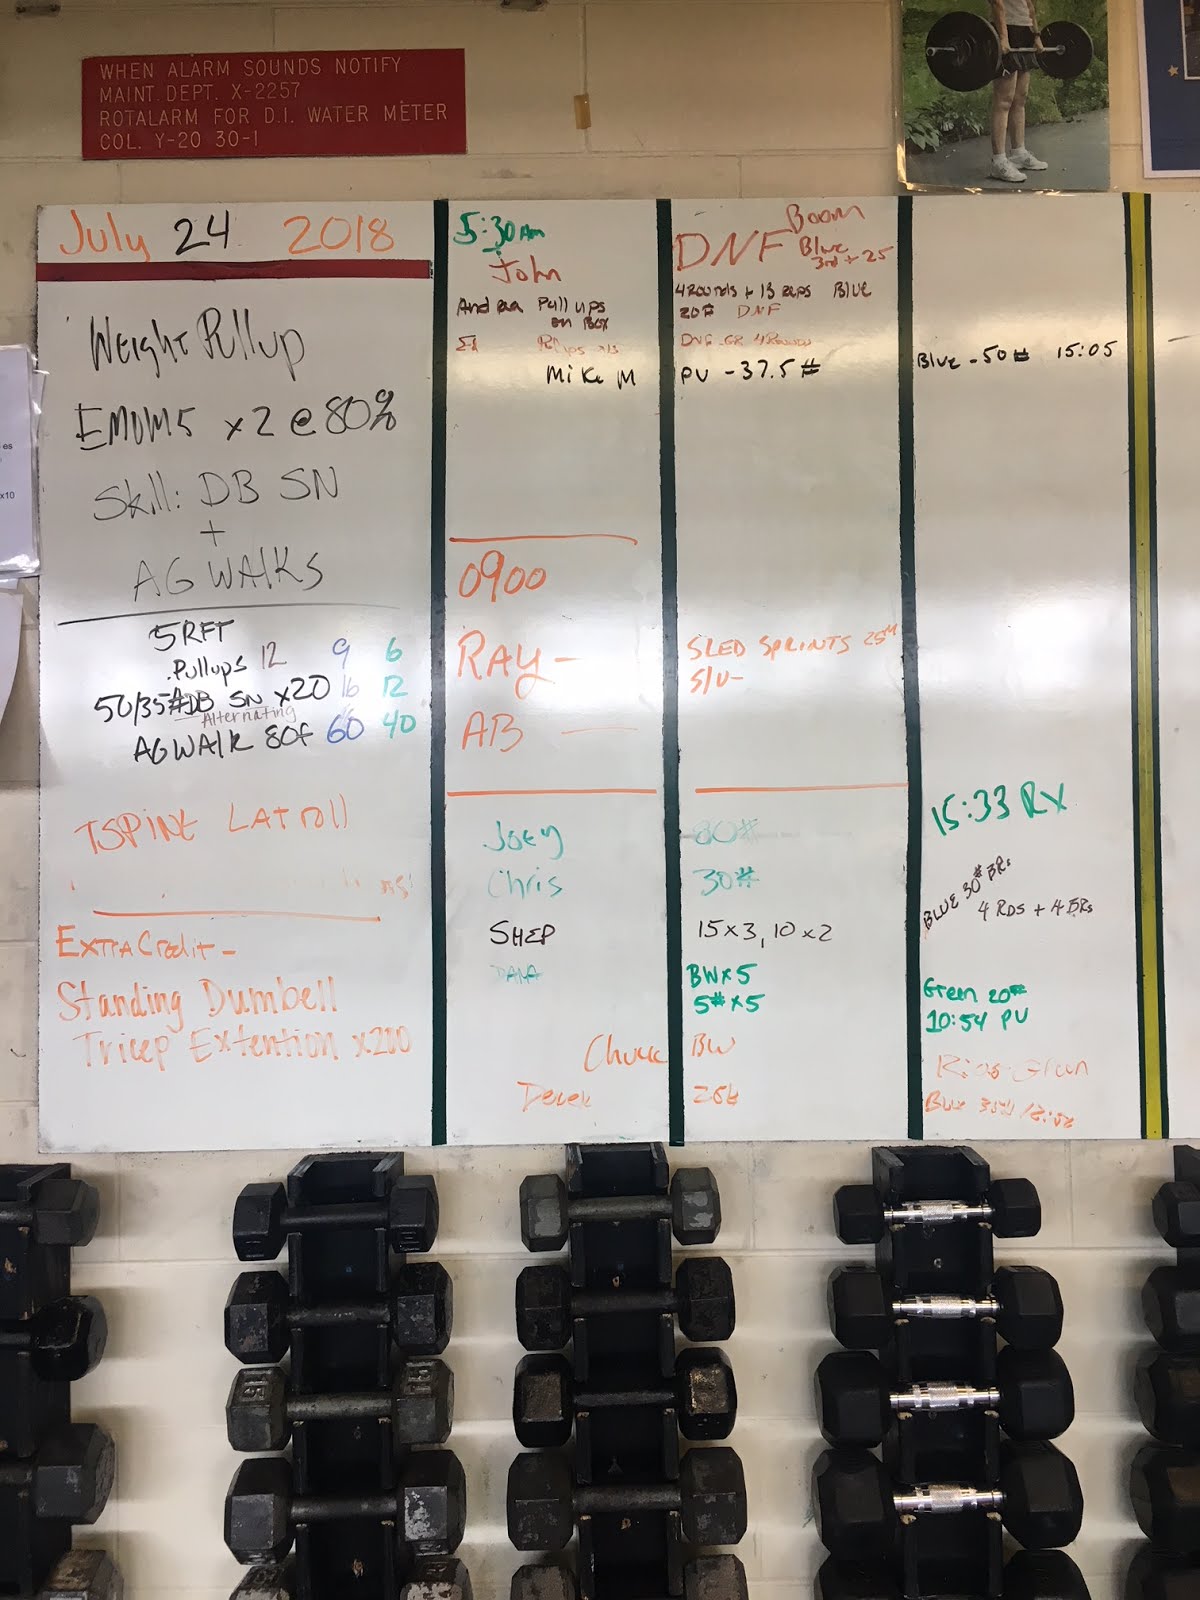 WHEN ALARM SOUNDS NOTIFY
MAINT. DEPT. X-2257
ROTALARM FOR D.I. WATER METER
COL. Y-20 30-1
July 24 2018
Weight Pullup
EMOM5 x2 @ 80%
Skill: DB SN
+
AG WALKS
5 RFT
Pullups 12 9 6
50/35# DB SN x20 16 12
Alternating
AG WALK 80f 60 40
TSPINE LAT roll
Extra Credit -
Standing Dumbell
Tricep Extention x200
5:30 Am
John
Andrea Pull ups
on Box
Mike M
0900
RAY -
AB
Joey
Chris
SHEP
DANA
Chuck
Derek
Boom
DNF Blue
3rd + 25
4 Rounds + 13 reps Blue
20# DNF
DNF 4 Rounds
PU - 37.5#
SLED SPRINTS 25M
S/U-
80#
30#
15x3, 10x2
BW x 5
5# x 5
BW
Blue - 50# 15:05
15:33 RX
BLUE 30# BRs
4 RDS + 4 BRs
Green 20#
10:54 PU
es
x10